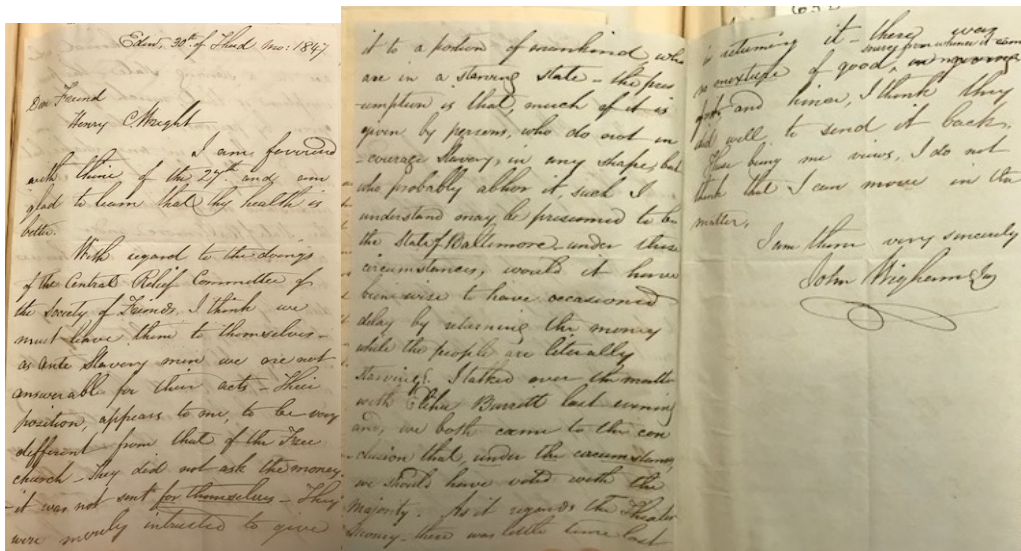 Edinr, 30th. of Third mo: 1847
Dear Friend
Henry C Wright
I am favoured
with thine of the 27th. and am
glad to learn that thy health is
better.
With regard to the doings
of the Central Relief Committee of
the Society of Friends, I think we
must leave them to themselves -
as anti Slavery men we are not
answerable for their acts - Their
position, appears to me, to be very
different from that of the Free
church - They did not ask the money.
- it was not sent for themselves - They
were merely intrusted to give
it to a portion of mankind, who
are in a starving state - the pres
umption is that, much of it is
given by persons, who do not in
- courage Slavery, in any shape, but
who probably abhor it, such I
understand may be presumed to be
the State of Baltimore - under these
circumstances, would it have
been wise to have occasioned
delay by returning the money
while the people are literally
starving. I talked over the matter
with Elihu Burritt last evening
and, we both came to the con
- clusion that, under the circumstances,
we should have voted with the
majority. As it regards the Theater
money - there was little time lost
in returning it - there was
no mixture of good, source from whence it came
and, I think they
did well to send it back.
These being my views, I do not
think that I can move in the
matter,
I am thine very sincerely
John Wigham Jr